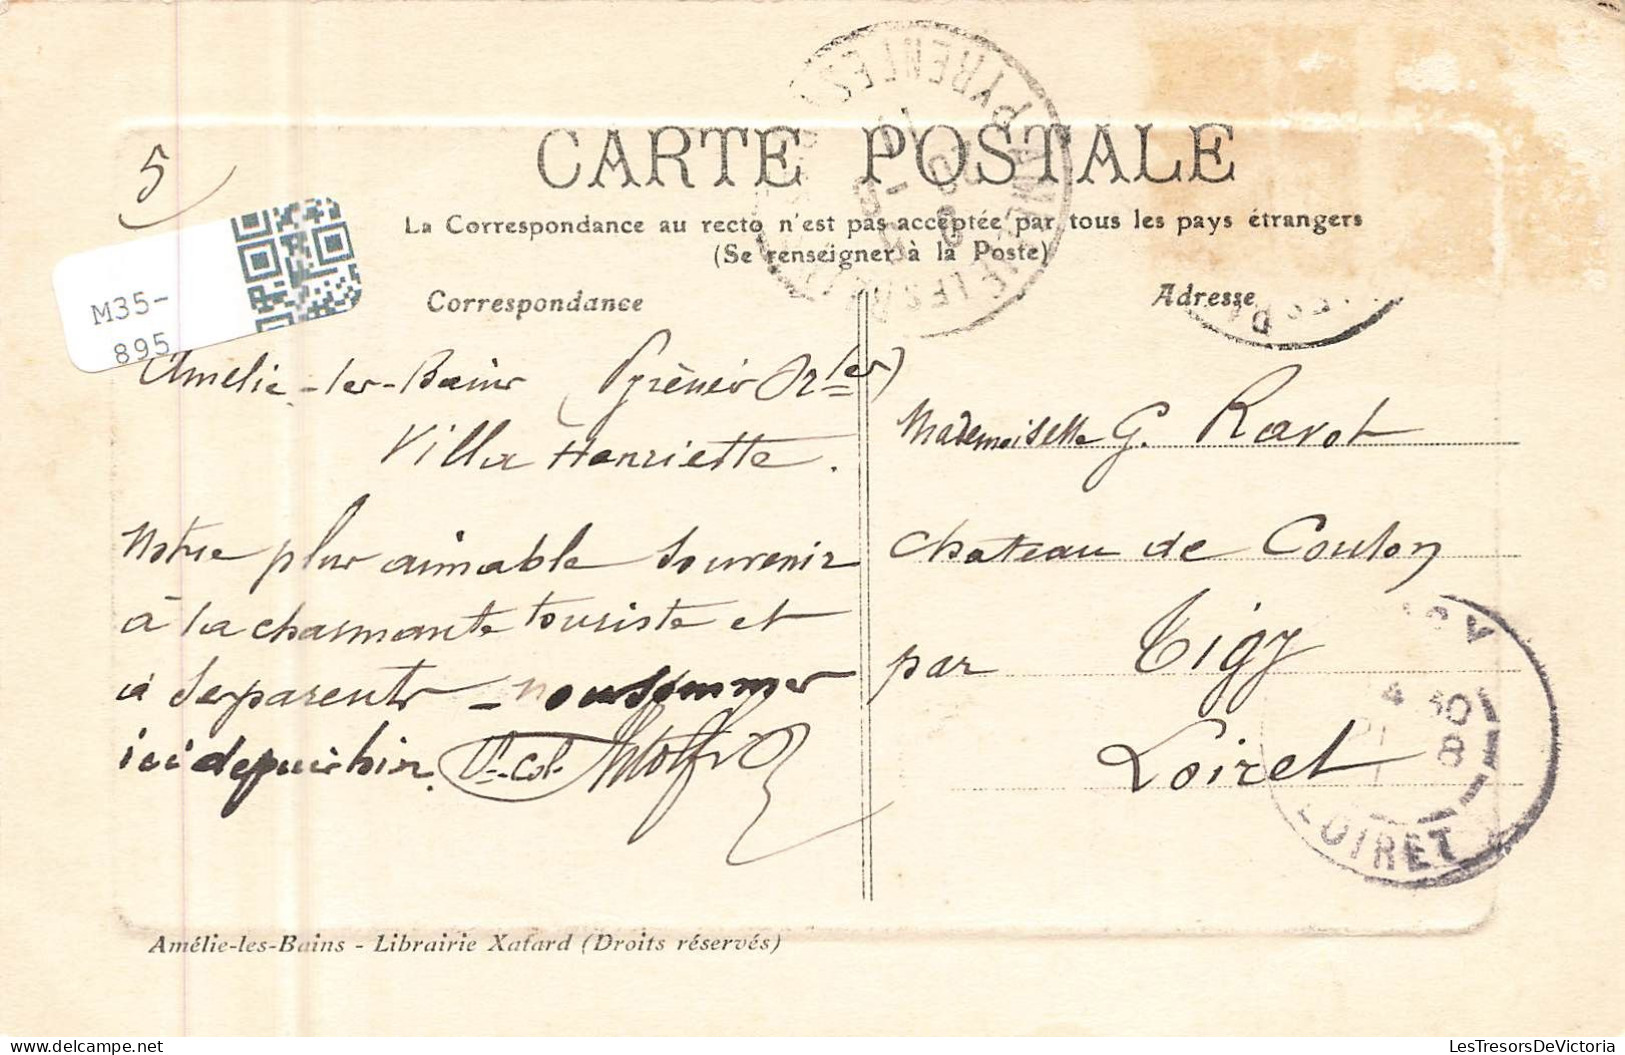 5
CARTE POSTALE
La Correspondance au recto n'est pas acceptée par tous les pays étrangers
(Se renseigner à la Poste)
Correspondance
Adresse
M35-
895
Amélie-les-Bains (Pyrénées Or^les)
Villa Henriette.
Notre plus aimable souvenir
à la charmante touriste et
à ses parents - nous sommes
ici depuis hier.
Mademoiselle G. Ravot
Chateau de Coulon
par Tigy
Loiret
4 30
LOIRET
Amélie-les-Bains - Librairie Xatard (Droits réservés)
LesTresorsDeVictoria